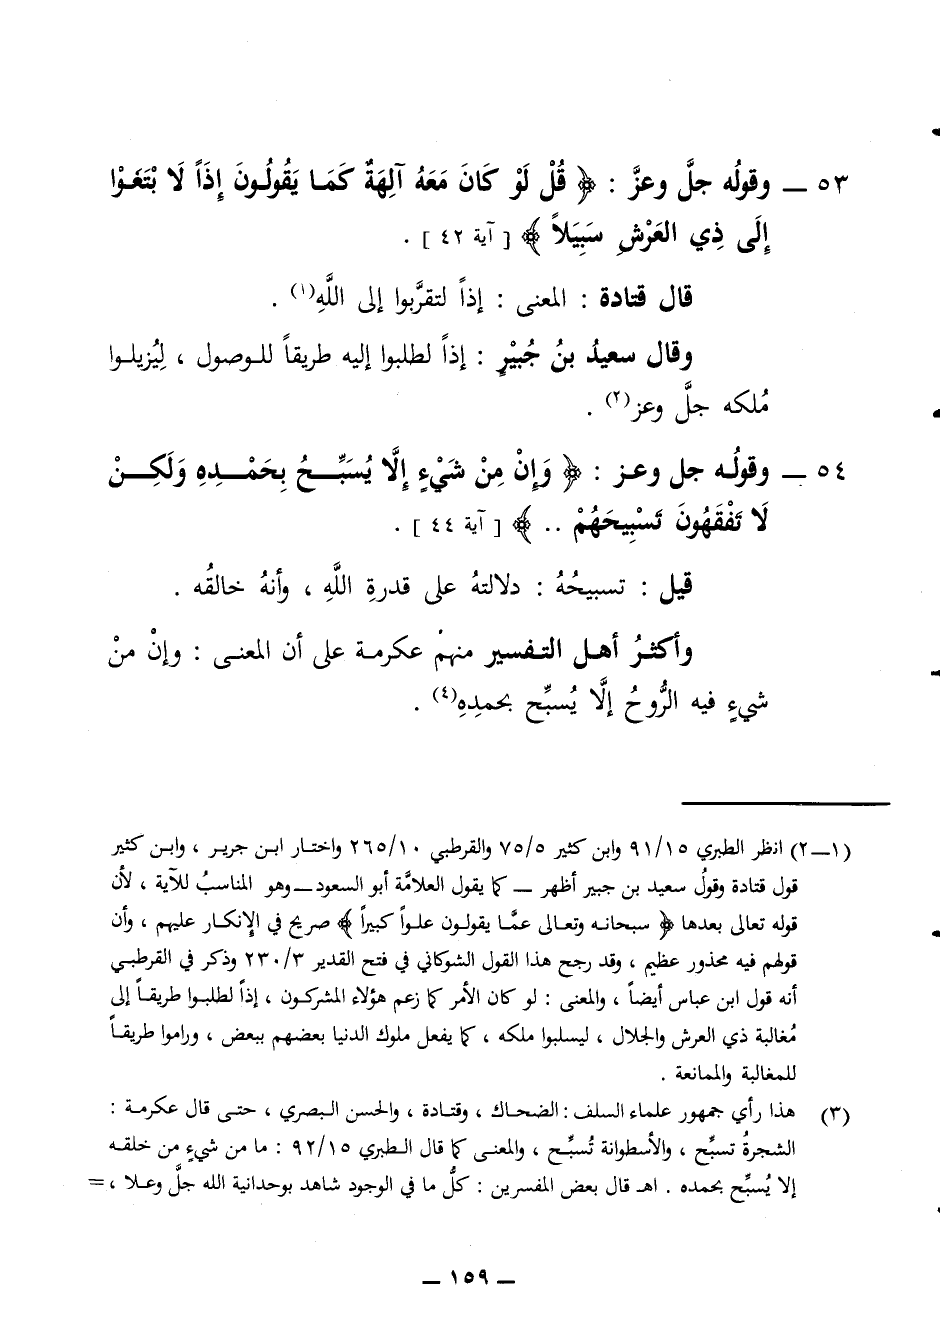 ٥٣ ــ وقولُه جلَّ وعزَّ : ﴿ قُلْ لَوْ كَانَ مَعَهُ آلِهَةٌ كَمَـا يَقُولُـونَ إِذَاً لَا بْتَغَـوْا
إِلَى ذِي العَرْشِ سَبِيَلاً ﴾ [ آية ٤٢ ] .
قال قتادة : المعنى : إذاً لتقرَّبوا إلى اللَّهِ(١) .
وقال سعيدُ بنُ جُبيْرٍ : إذاً لطلبوا إليه طريقاً للـوصول ، لِيُزيلـوا
مُلكه جلَّ وعز(٢) .
٥٤ ــ وقولُـه جل وعـز : ﴿ وَإِنْ مِنْ شَيْءٍ إِلَّا يُسَبِّـــحُ بِحَمْــدِهِ وَلَكِــنْ
لَا تَفْقَهُونَ تَسْبِيحَهُمْ .. ﴾ [ آية ٤٤ ] .
قيل : تسبيحُهُ : دلالتهُ على قدرةِ اللَّهِ ، وأنهُ خالقُه .
وأكثـرُ أهـل التـفسير منهمْ عكرمـة على أن المعنـى : وإنْ منْ
شيءٍ فيه الرُّوحُ إلَّا يُسبِّح بحمدِهِ(٤) .
(١ــ٢) انظر الطبري ٩١/١٥ وابن كثير ٧٥/٥ والقرطبي ٢٦٥/١٠ واختـار ابـن جريـر ، وابـن كثير
قول قتادة وقولُ سعيد بن جبير أظهر ــ كما يقول العلامَّة أبو السعود ــ وهو المناسبُ للآية ، لأن
قوله تعالى بعدها ﴿ سبحانـه وتعـالى عمَّـا يقولـون علـواً كبيراً ﴾ صريح في الإنكـار عليهم ، وأن
قولهم فيه محذور عظيم ، وقد رجح هذا القول الشوكاني في فتح القدير ٢٣٠/٣ وذكر في القرطبـي
أنه قول ابن عباس أيضاً ، والمعنى : لو كان الأمر كما زعم هؤلاء المشركـون ، إذاً لطلبـوا طريقـاً إلى
مُغالبة ذي العرش والجلال ، ليسلبوا ملكه ، كما يفعل ملوك الدنيا بعضهم ببعض ، وراموا طريقـاً
للمغالبة والممانعة .
(٣) هذا رأي جمهور علماء السلف : الضحاك ، وقتادة ، والحسن البصري ، حتـى قال عكرمـة :
الشجرةُ تسبِّح ، والأسطوانة تُسبِّـح ، والمعنـى كما قال الـطبري ٩٢/١٥ : ما من شيءٍ من خلقـه
إلا يُسبِّح بحمده . اهـ قال بعض المفسرين : كلُّ ما في الوجود شاهد بوحدانية الله جلَّ وعـلا ، =
ــ ١٥٩ ــ